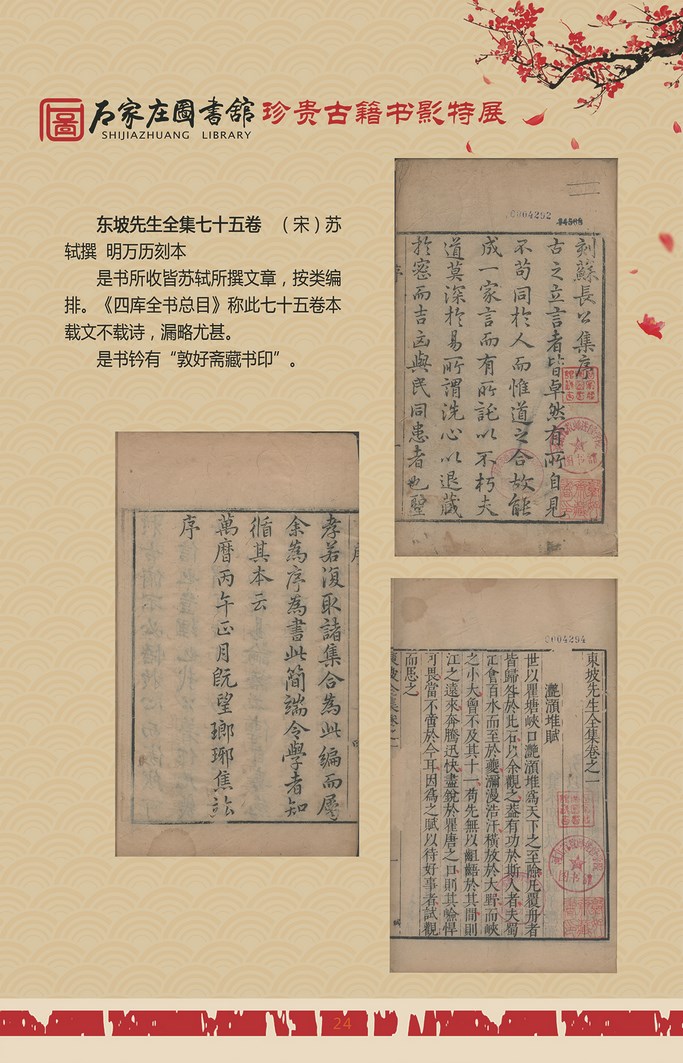 石家庄圖書舘 珍贵古籍书影特展
SHIJIAZHUANG LIBRARY
东坡先生全集七十五卷 （宋）苏
轼撰 明万历刻本
是书所收皆苏轼所撰文章，按类编
排。《四库全书总目》称此七十五卷本
载文不载诗，漏略尤甚。
是书钤有“敦好斋藏书印”。
C004292
刻蘇長公集序
古之立言者皆卓然有所自見
不苟同於人而惟道之合故能
成一家言而有所託以不朽夫
道莫深於易所謂洗心以退藏
於密而吉凶與民同患者也聖
孝若復取諸集合為此編而屬
余為序為書此簡端令學者知
循其本云
萬曆丙午正月既望瑯琊焦竑
序
C004294
東坡先生全集卷之一
灔澦堆賦
世以瞿塘峽口灔澦堆爲天下之至險凡覆舟者
皆歸咎於此石以余觀之蓋有功於斯人者夫蜀
江會百水而至於夔瀰漫浩汗橫放於大野而峽
之小大曾不及其十一苟先無以齟齬於其間則
江之遠來奔騰迅快盡銳於瞿唐之口則其嶮悍
可畏當不啻於今耳因爲之賦以待好事者試觀
而思之
24